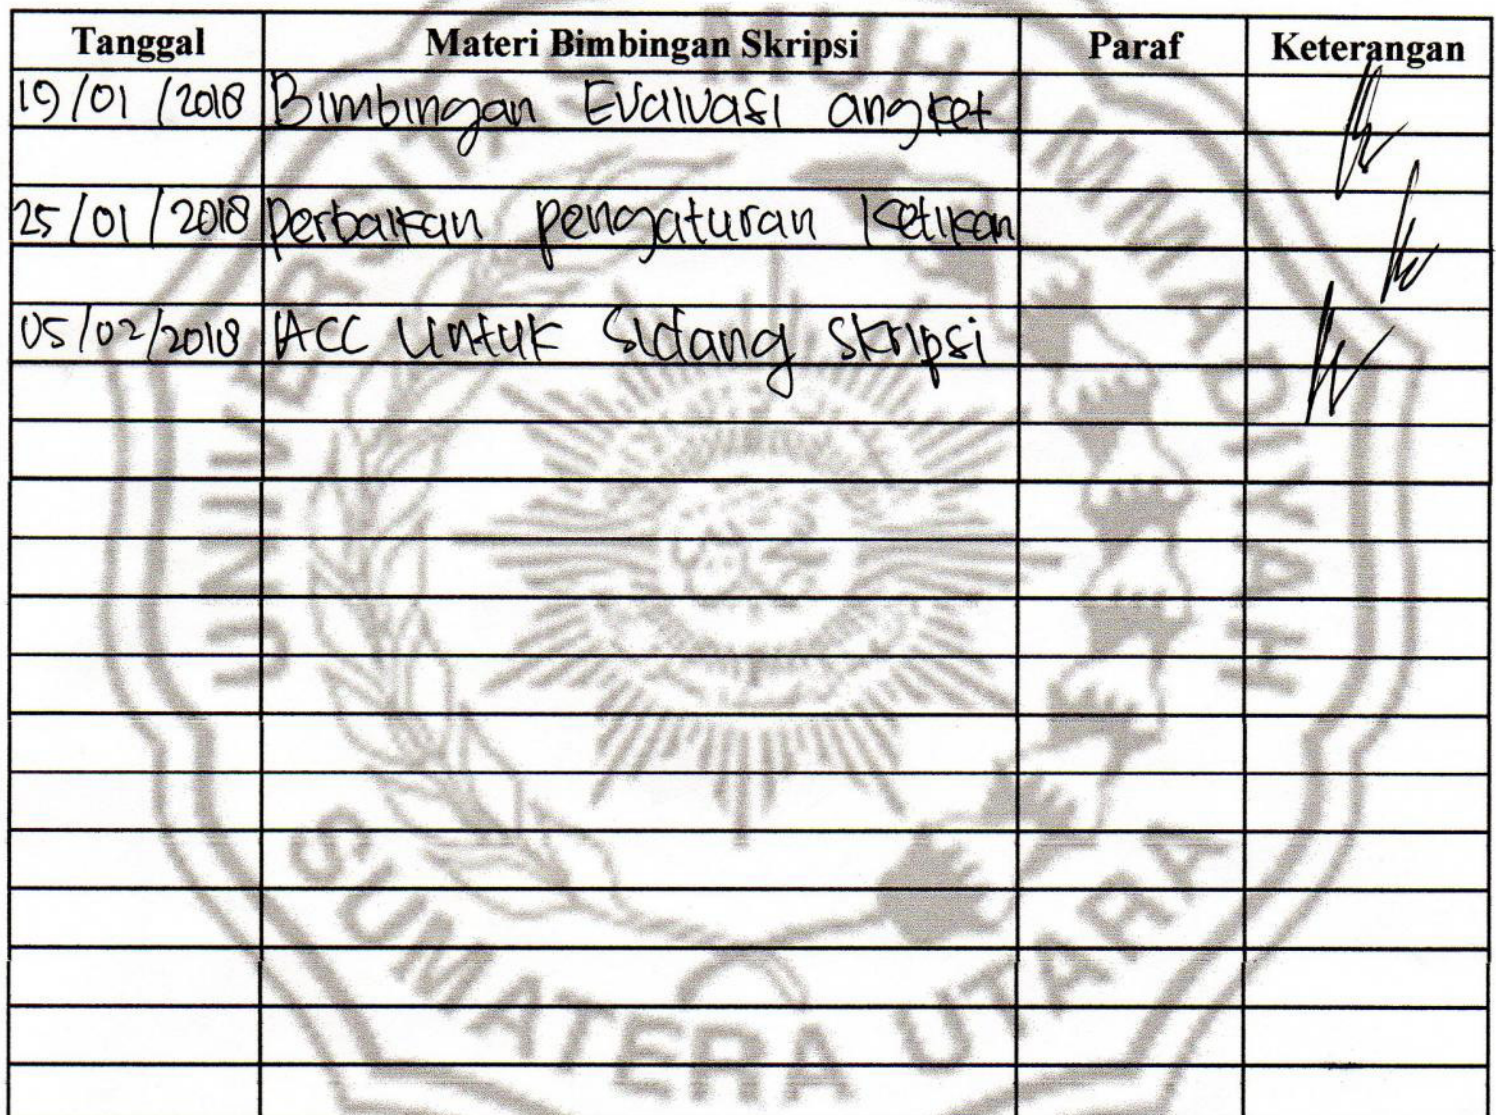 Tanggal Materi Bimbingan Skripsi Paraf Keterangan
19/01/2018 Bimbingan Evaluasi angket
25/01/2018 Perbaikan pengaturan ketikan
05/02/2018 ACC Untuk Sidang Skripsi
UNIVERSITAS MUHAMMADIYAH
SUMATERA UTARA